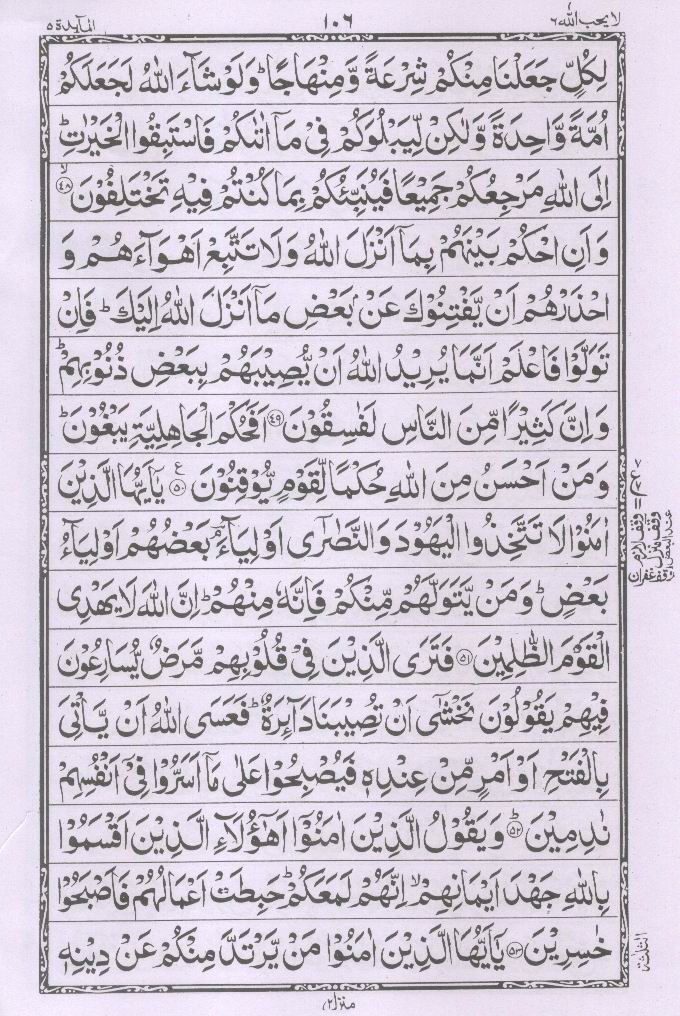 المآئدة ٥
١٠٦
لا يحب الله ٦
لِكُلٍّ جَعَلْنَا مِنْكُمْ شِرْعَةً وَّمِنْهَاجًا ؕ وَلَوْ شَآءَ اللّٰهُ لَجَعَلَكُمْ
اُمَّةً وَّاحِدَةً وَّلٰكِنْ لِّيَبْلُوَكُمْ فِیْ مَاۤ اٰتٰىكُمْ فَاسْتَبِقُوا الْخَيْرٰتِ ؕ
اِلَى اللّٰهِ مَرْجِعُكُمْ جَمِيْعًا فَيُنَبِّئُكُمْ بِمَا كُنْتُمْ فِيْهِ تَخْتَلِفُوْنَ ۙ ﴿٤٨﴾
وَاَنِ احْكُمْ بَيْنَهُمْ بِمَاۤ اَنْزَلَ اللّٰهُ وَلَا تَتَّبِعْ اَهْوَآءَهُمْ وَ
احْذَرْهُمْ اَنْ يَّفْتِنُوْكَ عَنْۢ بَعْضِ مَاۤ اَنْزَلَ اللّٰهُ اِلَيْكَ ؕ فَاِنْ
تَوَلَّوْا فَاعْلَمْ اَنَّمَا يُرِيْدُ اللّٰهُ اَنْ يُّصِيْبَهُمْ بِبَعْضِ ذُنُوْبِهِمْ ؕ
وَاِنَّ كَثِيْرًا مِّنَ النَّاسِ لَفٰسِقُوْنَ ﴿٤٩﴾ اَفَحُكْمَ الْجَاهِلِيَّةِ يَبْغُوْنَ ؕ
وَمَنْ اَحْسَنُ مِنَ اللّٰهِ حُكْمًا لِّقَوْمٍ يُّوْقِنُوْنَ ﴿٥٠﴾ ع يٰۤاَيُّهَا الَّذِيْنَ
اٰمَنُوْا لَا تَتَّخِذُوا الْيَهُوْدَ وَالنَّصٰرٰۤى اَوْلِيَآءَ ۘ بَعْضُهُمْ اَوْلِيَآءُ
بَعْضٍ ؕ وَمَنْ يَّتَوَلَّهُمْ مِّنْكُمْ فَاِنَّهٗ مِنْهُمْ ؕ اِنَّ اللّٰهَ لَا يَهْدِى
الْقَوْمَ الظّٰلِمِيْنَ ﴿٥١﴾ فَتَرَى الَّذِيْنَ فِیْ قُلُوْبِهِمْ مَّرَضٌ يُّسَارِعُوْنَ
فِيْهِمْ يَقُوْلُوْنَ نَخْشٰۤى اَنْ تُصِيْبَنَا دَآىِٕرَةٌ ؕ فَعَسَى اللّٰهُ اَنْ يَّاْتِیَ
بِالْفَتْحِ اَوْ اَمْرٍ مِّنْ عِنْدِهٖ فَيُصْبِحُوْا عَلٰى مَاۤ اَسَرُّوْا فِیْۤ اَنْفُسِهِمْ
نٰدِمِيْنَ ؕ ﴿٥٢﴾ وَيَقُوْلُ الَّذِيْنَ اٰمَنُوْۤا اَهٰۤؤُلَآءِ الَّذِيْنَ اَقْسَمُوْا
بِاللّٰهِ جَهْدَ اَيْمَانِهِمْ ۙ اِنَّهُمْ لَمَعَكُمْ ؕ حَبِطَتْ اَعْمَالُهُمْ فَاَصْبَحُوْا
خٰسِرِيْنَ ﴿٥٣﴾ يٰۤاَيُّهَا الَّذِيْنَ اٰمَنُوْا مَنْ يَّرْتَدَّ مِنْكُمْ عَنْ دِيْنِهٖ
وقف لازم
وقف منزل
وقف غفران
الثلثة
منزل ٢